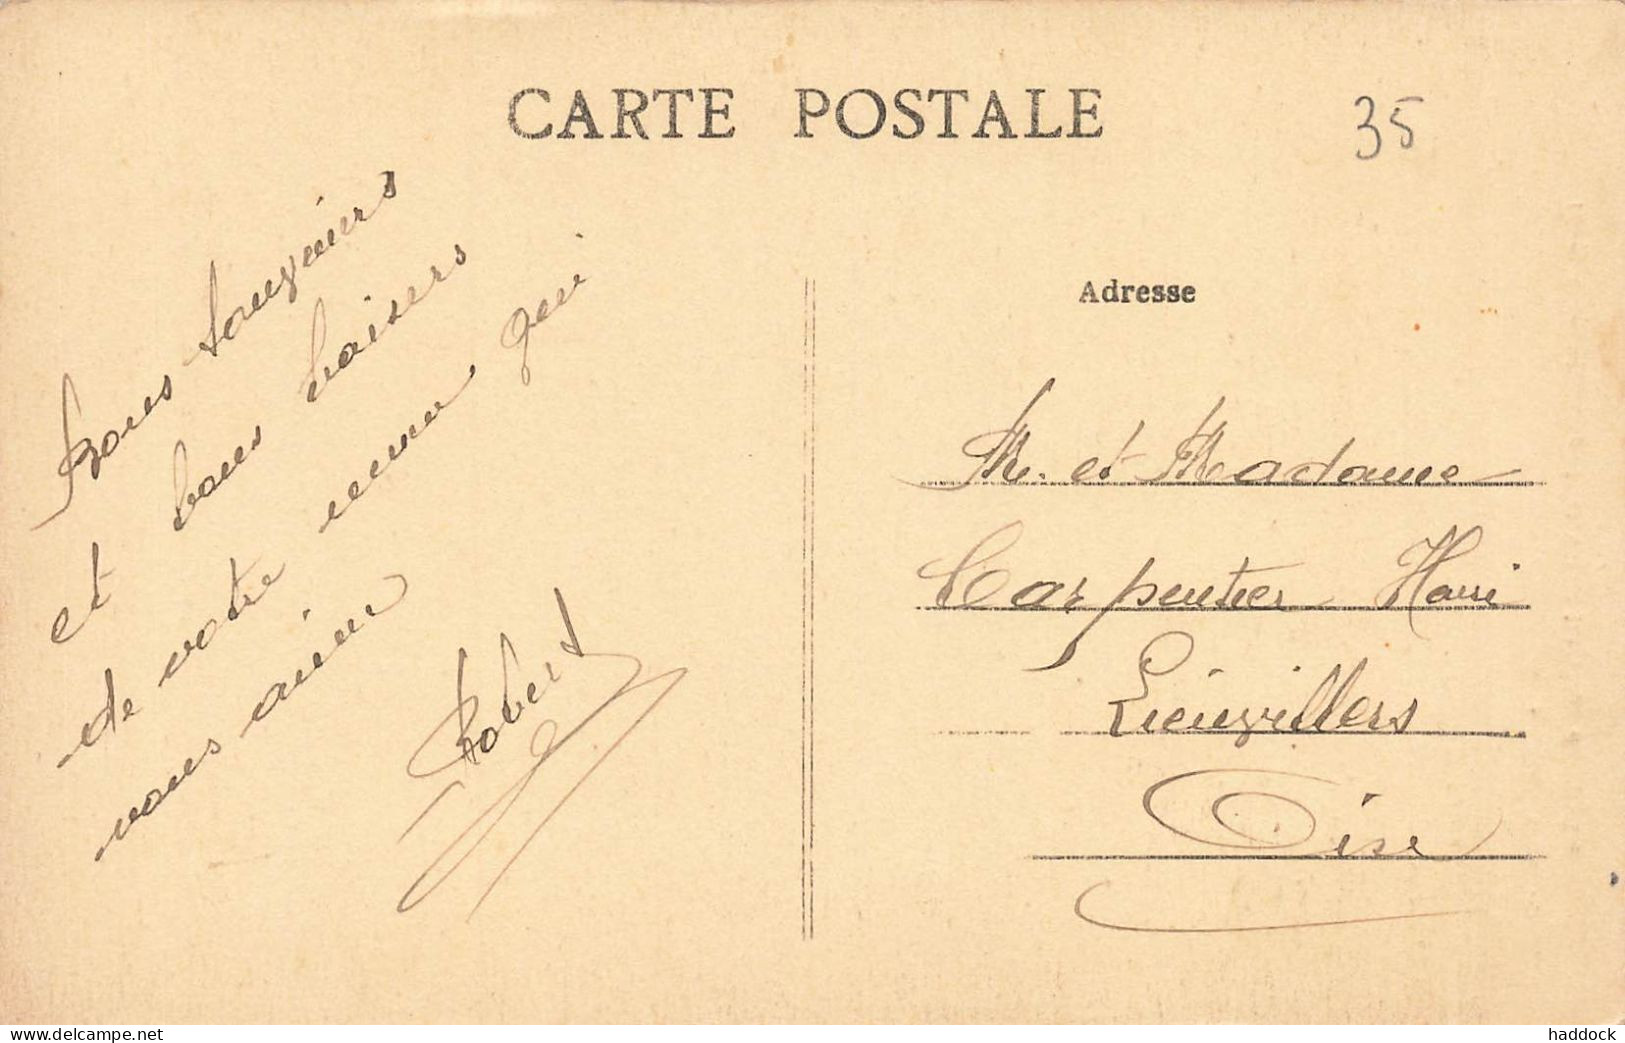 CARTE POSTALE
35
Bons souvenirs
et bons baisers
de votre neveu qui
vous aime
Robert
Adresse
M. et Madame
Carpentier Henri
Lieuvillers
Oise
www.delcampe.net
haddock